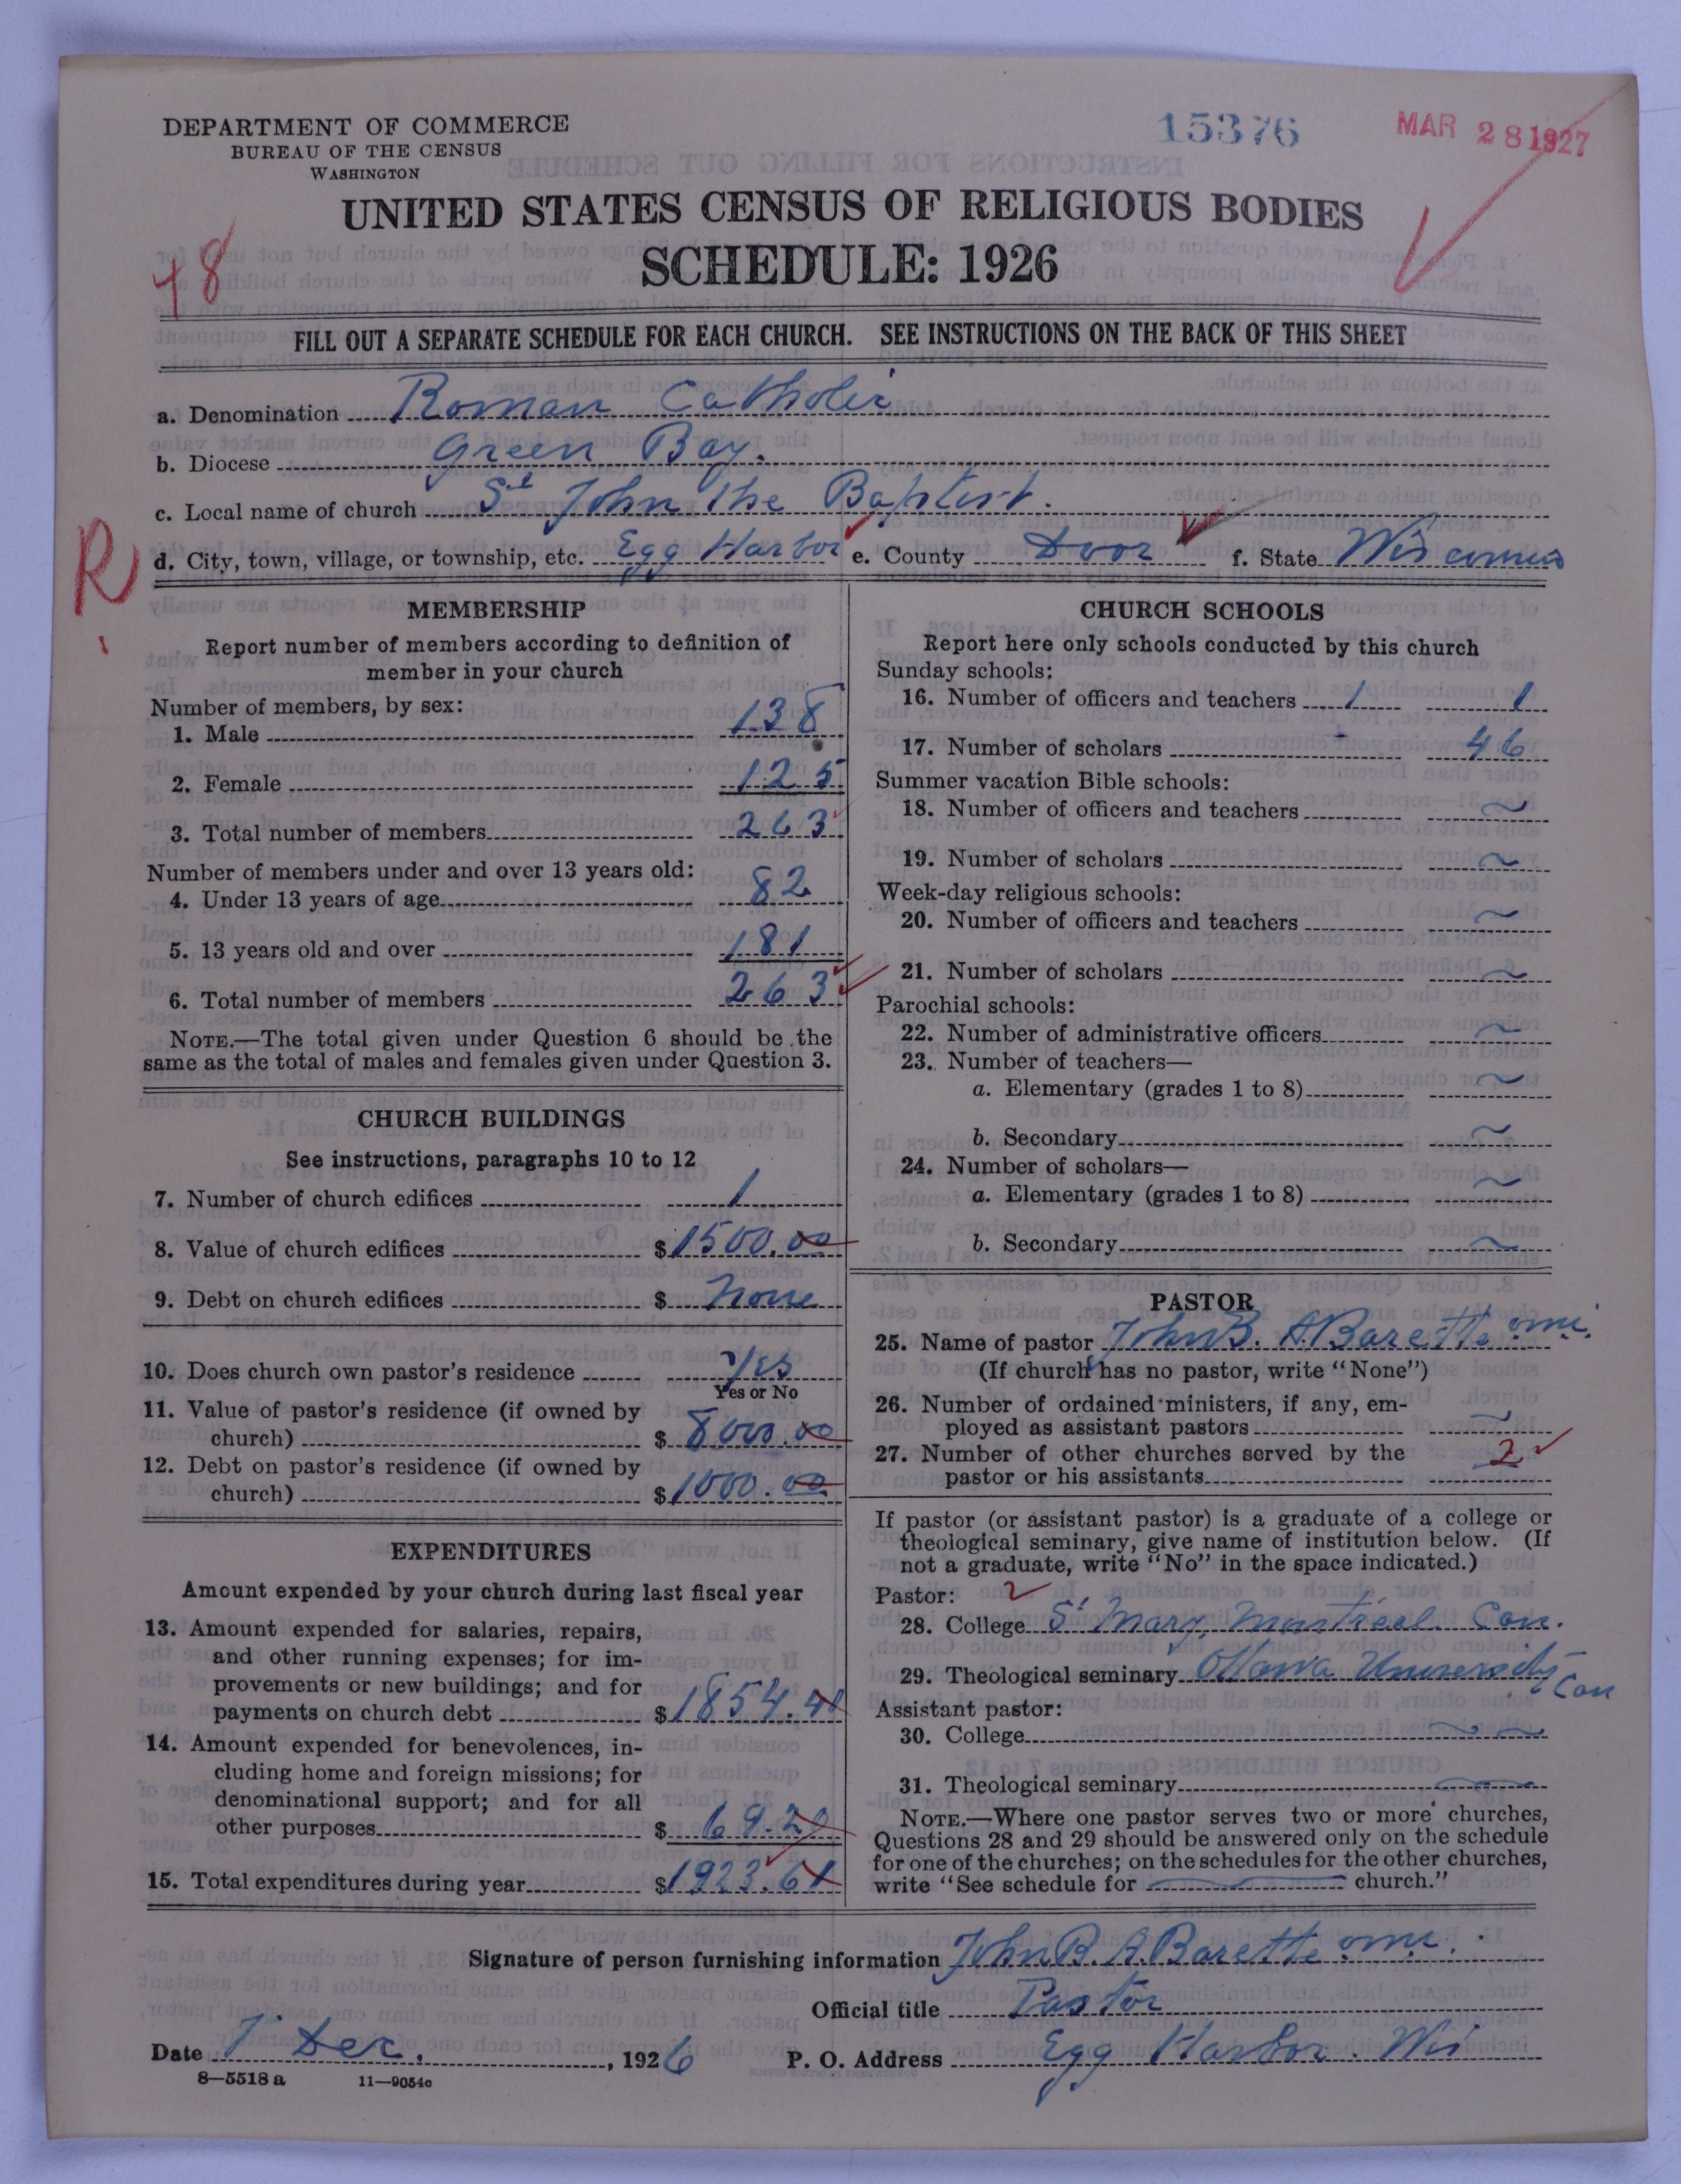 DEPARTMENT OF COMMERCE
BUREAU OF THE CENSUS
WASHINGTON
15376
MAR 28 1927
UNITED STATES CENSUS OF RELIGIOUS BODIES
SCHEDULE: 1926
48
FILL OUT A SEPARATE SCHEDULE FOR EACH CHURCH. SEE INSTRUCTIONS ON THE BACK OF THIS SHEET
a. Denomination Roman Catholic
b. Diocese Green Bay.
c. Local name of church St John the Baptist.
d. City, town, village, or township, etc. Egg Harbor e. County Door f. State Wisconsin
R
MEMBERSHIP
Report number of members according to definition of
member in your church
Number of members, by sex:
1. Male 138
2. Female 125
3. Total number of members 263
Number of members under and over 13 years old:
4. Under 13 years of age 82
5. 13 years old and over 181
6. Total number of members 263
NOTE.—The total given under Question 6 should be the
same as the total of males and females given under Question 3.
CHURCH BUILDINGS
See instructions, paragraphs 10 to 12
7. Number of church edifices 1
8. Value of church edifices $1500.00
9. Debt on church edifices $ None
10. Does church own pastor's residence Yes
Yes or No
11. Value of pastor's residence (if owned by
church) $ 8000.00
12. Debt on pastor's residence (if owned by
church) $1000.00
EXPENDITURES
Amount expended by your church during last fiscal year
13. Amount expended for salaries, repairs,
and other running expenses; for im-
provements or new buildings; and for
payments on church debt $1854.41
14. Amount expended for benevolences, in-
cluding home and foreign missions; for
denominational support; and for all
other purposes $ 69.20
15. Total expenditures during year $1923.61
CHURCH SCHOOLS
Report here only schools conducted by this church
Sunday schools:
16. Number of officers and teachers 1 1
17. Number of scholars 46
Summer vacation Bible schools:
18. Number of officers and teachers
19. Number of scholars
Week-day religious schools:
20. Number of officers and teachers
21. Number of scholars
Parochial schools:
22. Number of administrative officers
23. Number of teachers—
a. Elementary (grades 1 to 8)
b. Secondary
24. Number of scholars—
a. Elementary (grades 1 to 8)
b. Secondary
PASTOR
25. Name of pastor John B. A. Barette omi.
(If church has no pastor, write "None")
26. Number of ordained ministers, if any, em-
ployed as assistant pastors
27. Number of other churches served by the
pastor or his assistants 2
If pastor (or assistant pastor) is a graduate of a college or
theological seminary, give name of institution below. (If
not a graduate, write "No" in the space indicated.)
Pastor: 2
28. College St Mary, Montreal. Can.
29. Theological seminary Ottawa University Can
Assistant pastor:
30. College
31. Theological seminary
NOTE.—Where one pastor serves two or more churches,
Questions 28 and 29 should be answered only on the schedule
for one of the churches; on the schedules for the other churches,
write "See schedule for church."
Signature of person furnishing information John B. A. Barette omi.
Official title Pastor
Date 7 Dec., 1926 P. O. Address Egg Harbor. Wis
8—5518 a 11—9054c